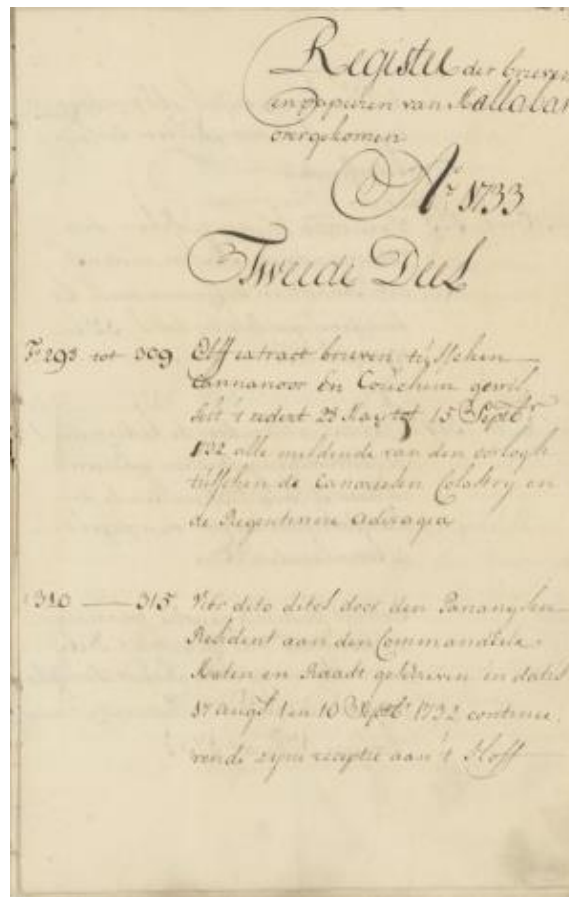 Register der brieven
en papieren van Mallabar
overgekomen
A.o 1733
Tweede Deel
F.o 293 tot 309 Elff extract brieven tusschen
Cannanoor en Couchim gewis„
selt 't zedert 23 May tot 15 Septb.r
1732 alle meldende van den oorlogh
tusschen de Canareesen Colastry en
de Regentinne Adiragia
310 — 315 dito ditos door den Pananysen
Resident aan den Commandeur
Maten en Raadt geschreven in datis
17 augs.t en 10 Septb.r 1732 continee„
rende zijne receptie aan 't Hoff